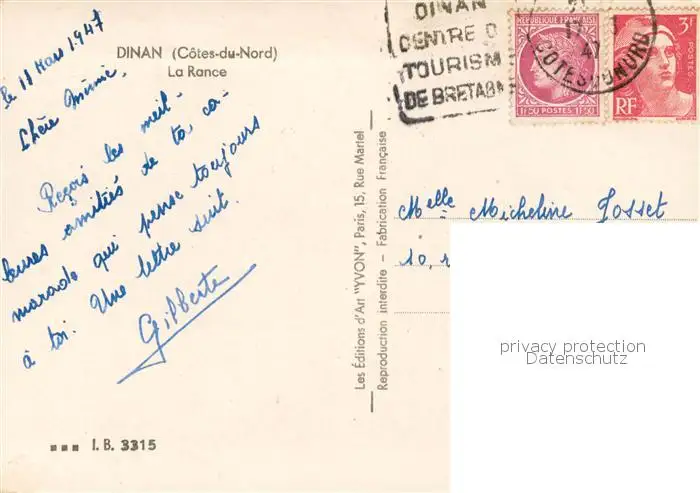 DINAN (Côtes-du-Nord)
La Rance
le 11 Mars 1947
Chère Mimie.
Reçois les meil-
leures amitiés de ta ca-
marade qui pense toujours
à toi. Une lettre suit.
Gilberte
▪▪▪ I. B. 3315
Les Editions d'Art "YVON", Paris, 15, Rue Martel
Reproduction interdite - Fabrication Française
DINAN
CENTRE D
TOURISM
DE BRETAGN
REPUBLIQUE FRANÇAISE
1F50 POSTES 1F50
3F
POSTES
RF
COTES DU NORD
Melle Micheline Josset
10, r
privacy protection
Datenschutz